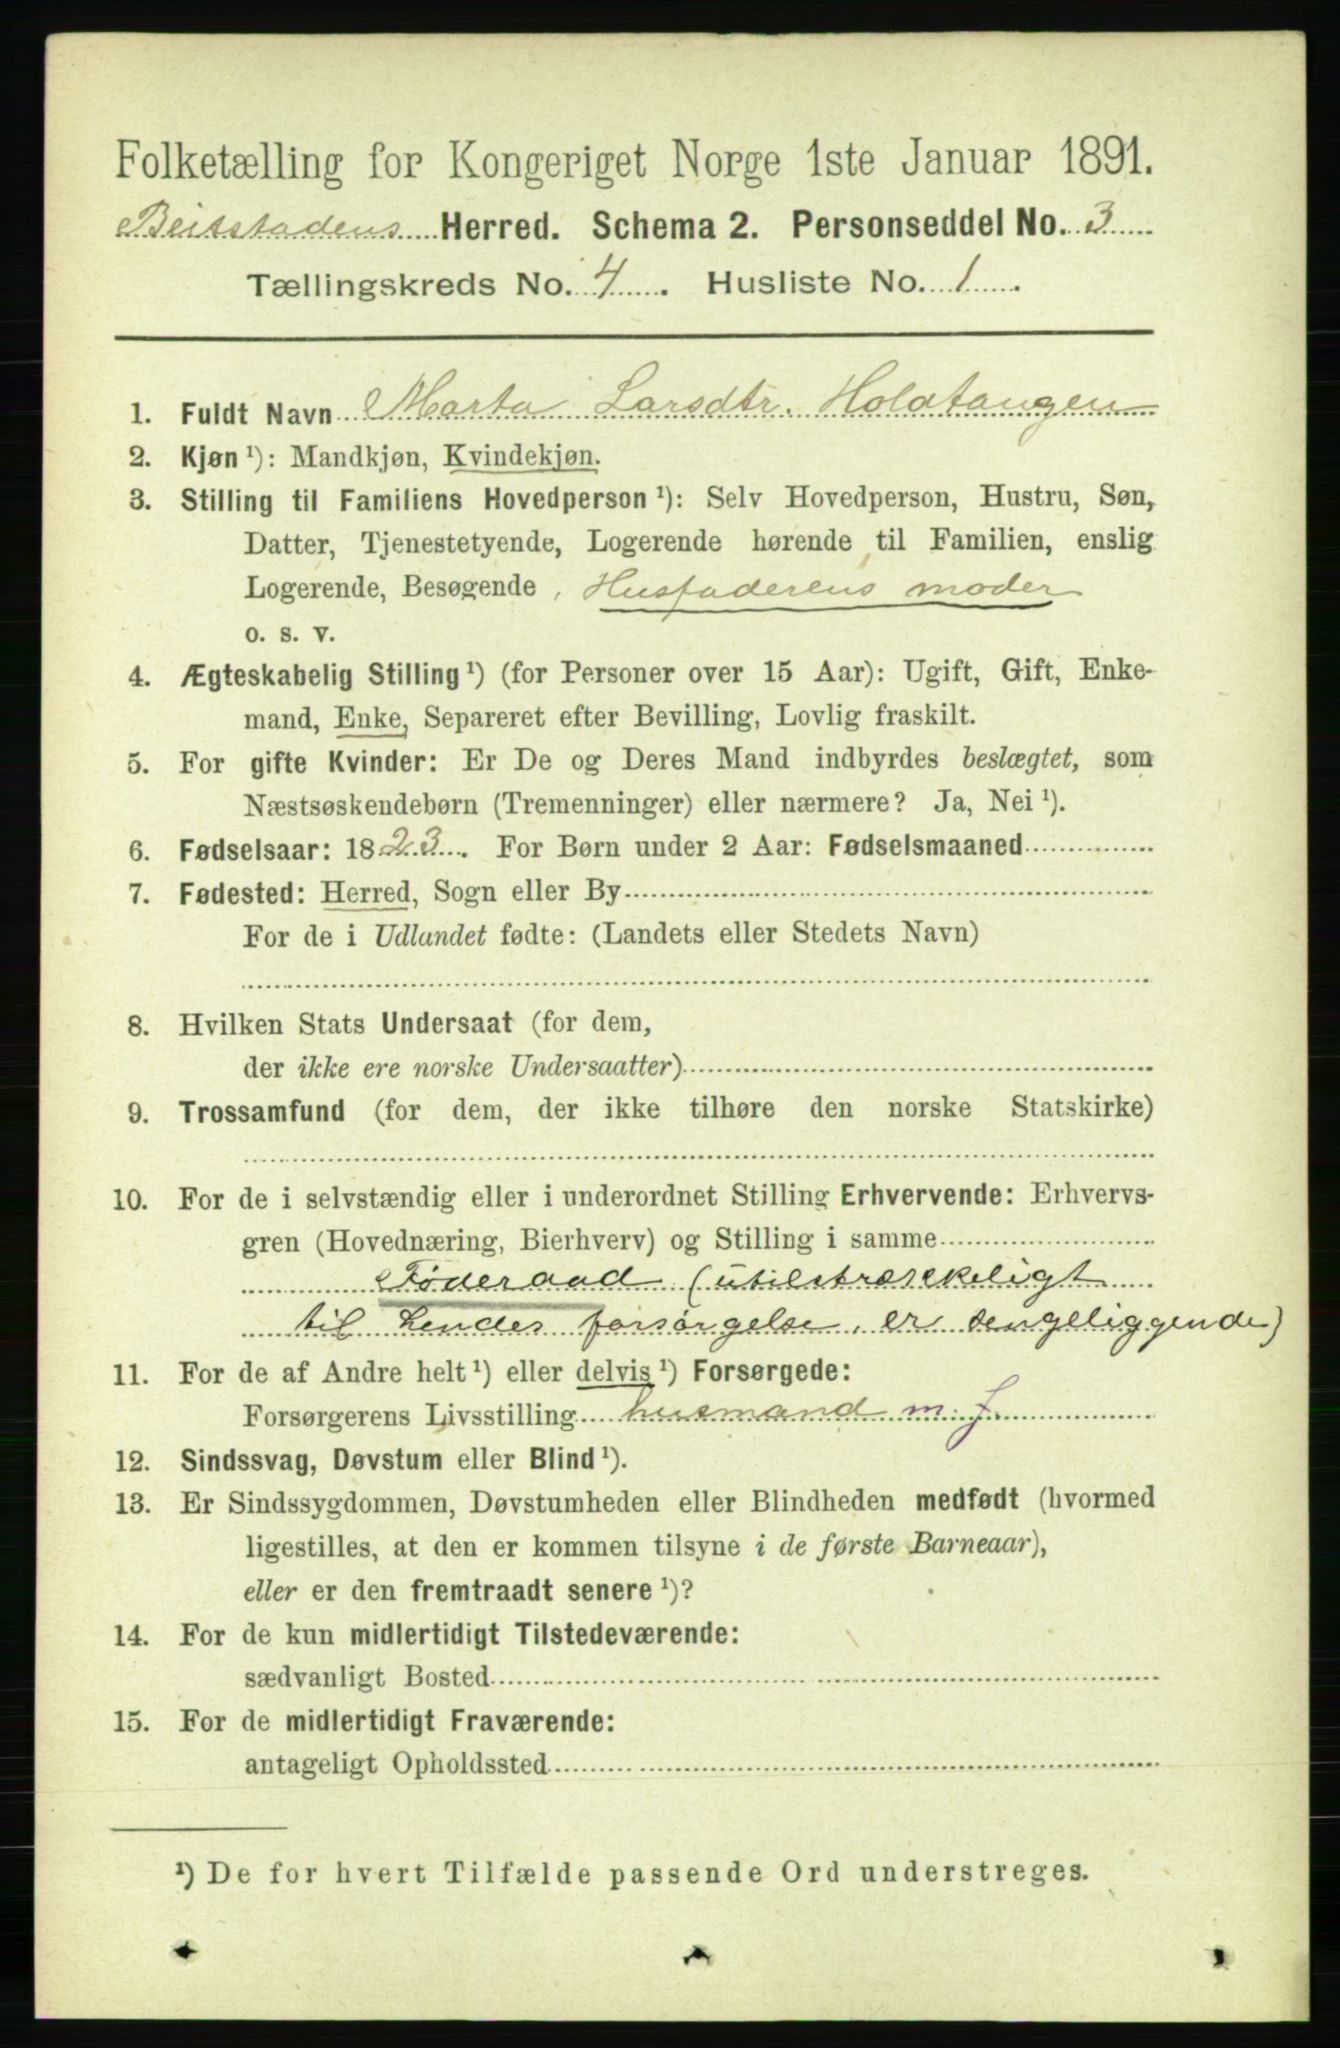 Folketælling for Kongeriget Norge 1ste Januar 1891.
Beitstadens Herred. Schema 2. Personseddel No. 3
Tællingskreds No. 4. Husliste No. 1.
1. Fuldt Navn Marta Larsdtr. Holatangen
2. Kjøn ¹): Mandkjøn, Kvindekjøn.
3. Stilling til Familiens Hovedperson ¹): Selv Hovedperson, Hustru, Søn,
Datter, Tjenestetyende, Logerende hørende til Familien, enslig
Logerende, Besøgende, Husfaderens moder
o. s. v.
4. Ægteskabelig Stilling ¹) (for Personer over 15 Aar): Ugift, Gift, Enke-
mand, Enke, Separeret efter Bevilling, Lovlig fraskilt.
5. For gifte Kvinder: Er De og Deres Mand indbyrdes beslægtet, som
Næstsøskendebørn (Tremenninger) eller nærmere? Ja, Nei ¹).
6. Fødselsaar: 1823. For Børn under 2 Aar: Fødselsmaaned
7. Fødested: Herred, Sogn eller By
For de i Udlandet fødte: (Landets eller Stedets Navn)
8. Hvilken Stats Undersaat (for dem,
der ikke ere norske Undersaatter)
9. Trossamfund (for dem, der ikke tilhøre den norske Statskirke)
10. For de i selvstændig eller i underordnet Stilling Erhvervende: Erhvervs-
gren (Hovednæring, Bierhverv) og Stilling i samme
Føderaad (utilstrækkeligt
til hendes forsørgelse, er sengeliggende)
11. For de af Andre helt ¹) eller delvis ¹) Forsørgede:
Forsørgerens Livsstilling husmand m. J.
12. Sindssvag, Døvstum eller Blind ¹).
13. Er Sindssygdommen, Døvstumheden eller Blindheden medfødt (hvormed
ligestilles, at den er kommen tilsyne i de første Barneaar),
eller er den fremtraadt senere ¹)?
14. For de kun midlertidigt Tilstedeværende:
sædvanligt Bosted
15. For de midlertidigt Fraværende:
antageligt Opholdssted
¹) De for hvert Tilfælde passende Ord understreges.